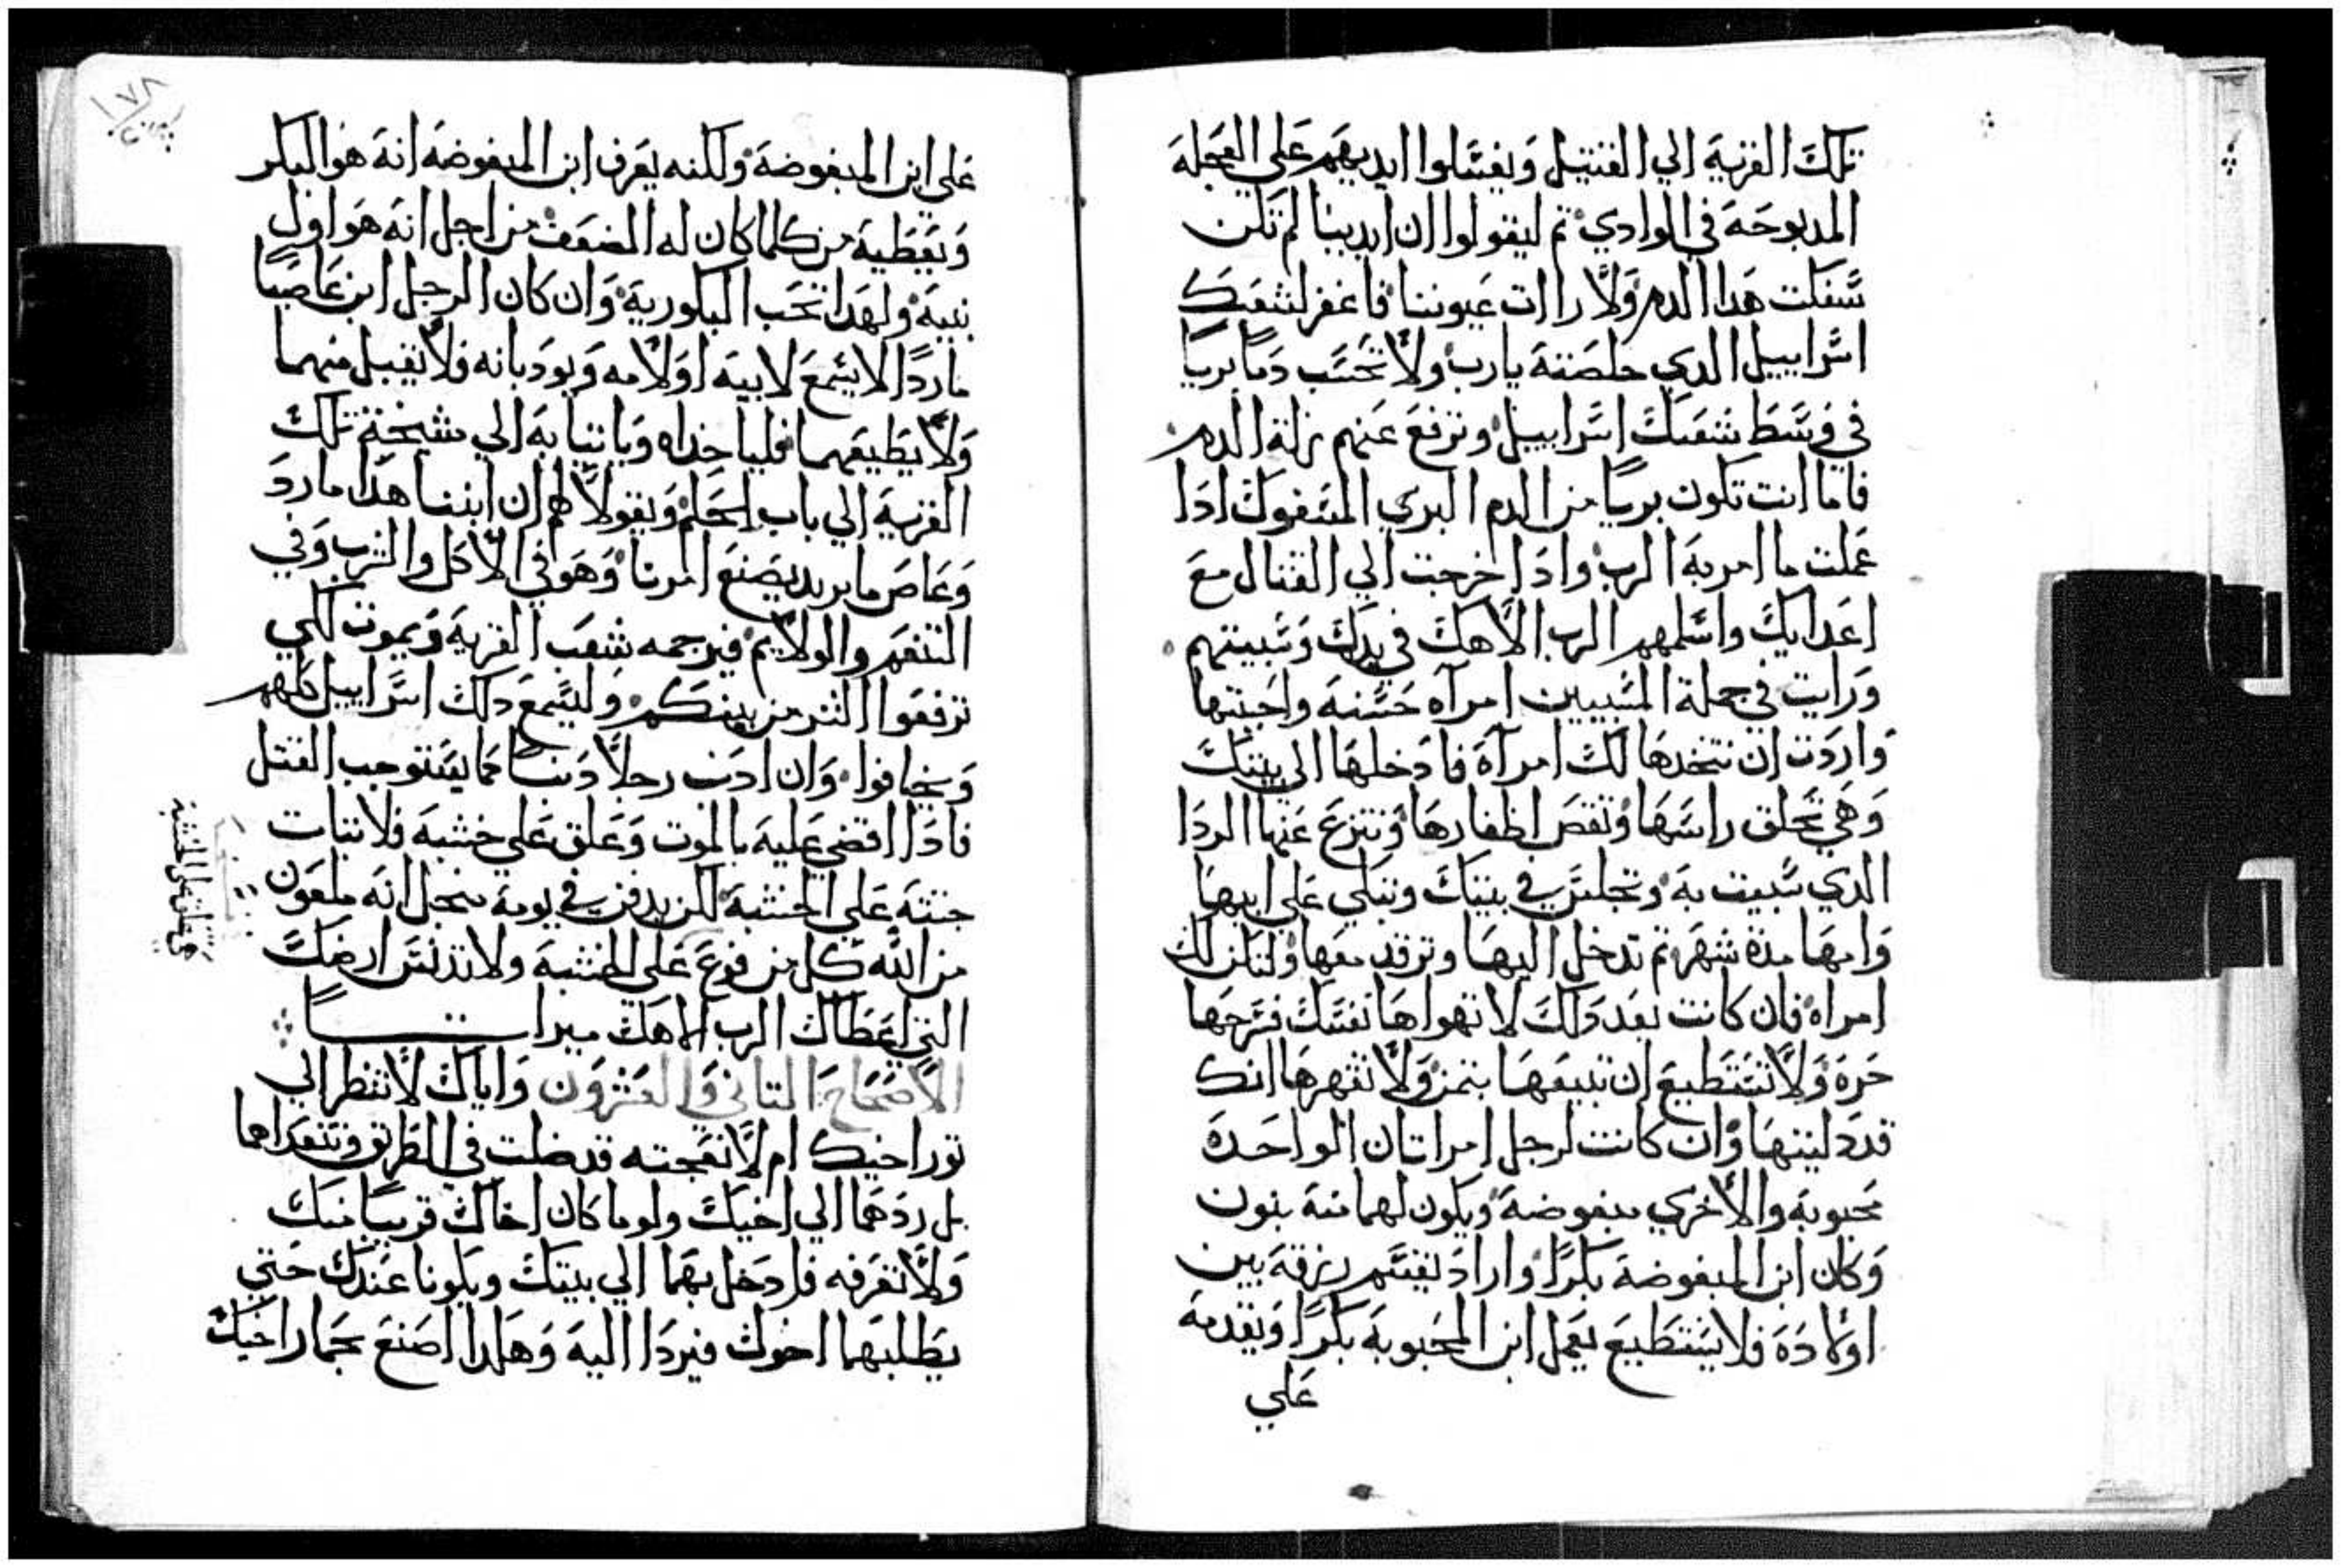 تلك القرية الي القتيل ويغسلوا ايديهم علي العجلة
المدبوحة في الوادي ثم ليقولوا ان ايدينا لم تكن
سفكت هدا الدم ولا راات عيوننا فاغفر لشعبك
اسراييل الدي خلصته يارب ولا تحسب دما بريا
في وسط شعبك اسراييل وترفع عنهم زلة الدم
فاما انت تكون بريا من الدم البري المسفوك ادا
عملت ما امر به الرب وادا خرجت الي القتال مع
اعدايك واسلمهم الرب الاهك في يدك وسبيتهم
ورايت في جملة المسبيين امراه حسنة واحببتها
واردت ان تتخدها لك امراة فادخلها الي بيتك
وهي تحلق راسها وتقص اظفارها وتنزع عنها الردا
الدي سبيت به وتجلس في بيتك وتبكي علي ابيها
وامها مدة شهر ثم تدخل اليها وترقد معها ولتكن لك
امراه فان كانت بعد دلك لا تهواها نفسك فسرحها
حرة ولا تستطيع ان تبيعها بتمن ولا تقهرها انك
قد دليتها وان كانت لرجل امراتان الواحدة
محبوبة والاخري مبغوضة ويكون لهما منه بنون
وكان ابن المبغوضة بكرا واراد يقسم رزقه بين
اولاده فلا يستطيع يعمل ابن المحبوبة بكرا ويقدمه
علي
علي ابن المبغوضة ولكنه يعرف ابن المبغوضة انه هو البكر
ويعطيه من كلما كان له الضعف من اجل انه هو اول
بنيه ولهدا تجب البكورية وان كان الرجل ابن عاصيا
ماردا لا يسمع لابيه او لامه ويودبانه فلا يقبل منهما
ولا يطيعهما فلياخداه وياتيا به الي مشيخة تلك
القرية الي باب الحكم ويقولا لهم ان ابننا هدا مارد
وعاص ما يريد يصنع امرنا وهو في الاكل والشرب وفي
التنعم والولايم فيرجمه شعب القرية ويموت لكي
ترفعوا الشر من بينكم وليسمع دلك اسراييل كلهم
ويخافوا وان ادنب رجلا دنبا مما يستوجب القتل
فادا اقضي عليه بالموت وعلق علي خشبة فلا تبات
جتته علي الخشبة لكن يدفن في يومه من اجل انه ملعون
من الله كل من فرع علي الخشبة ولا تدنس ارضك
التي اعطاك الرب الاهك ميراتا
الاصحاح التاني والعشرون واياك لا تنظر الي
تور اخيك ام لا نعجته قد ضلت في الطريق وتتعداهما
بل ردهما الي اخيك ولو ما كان اخاك قريبا منك
ولا تعرفه فادخل بهما الي بيتك ويكونا عندك حتي
يطلبهما اخوك فيردا اليه وهكدا اصنع بحمار اخيك